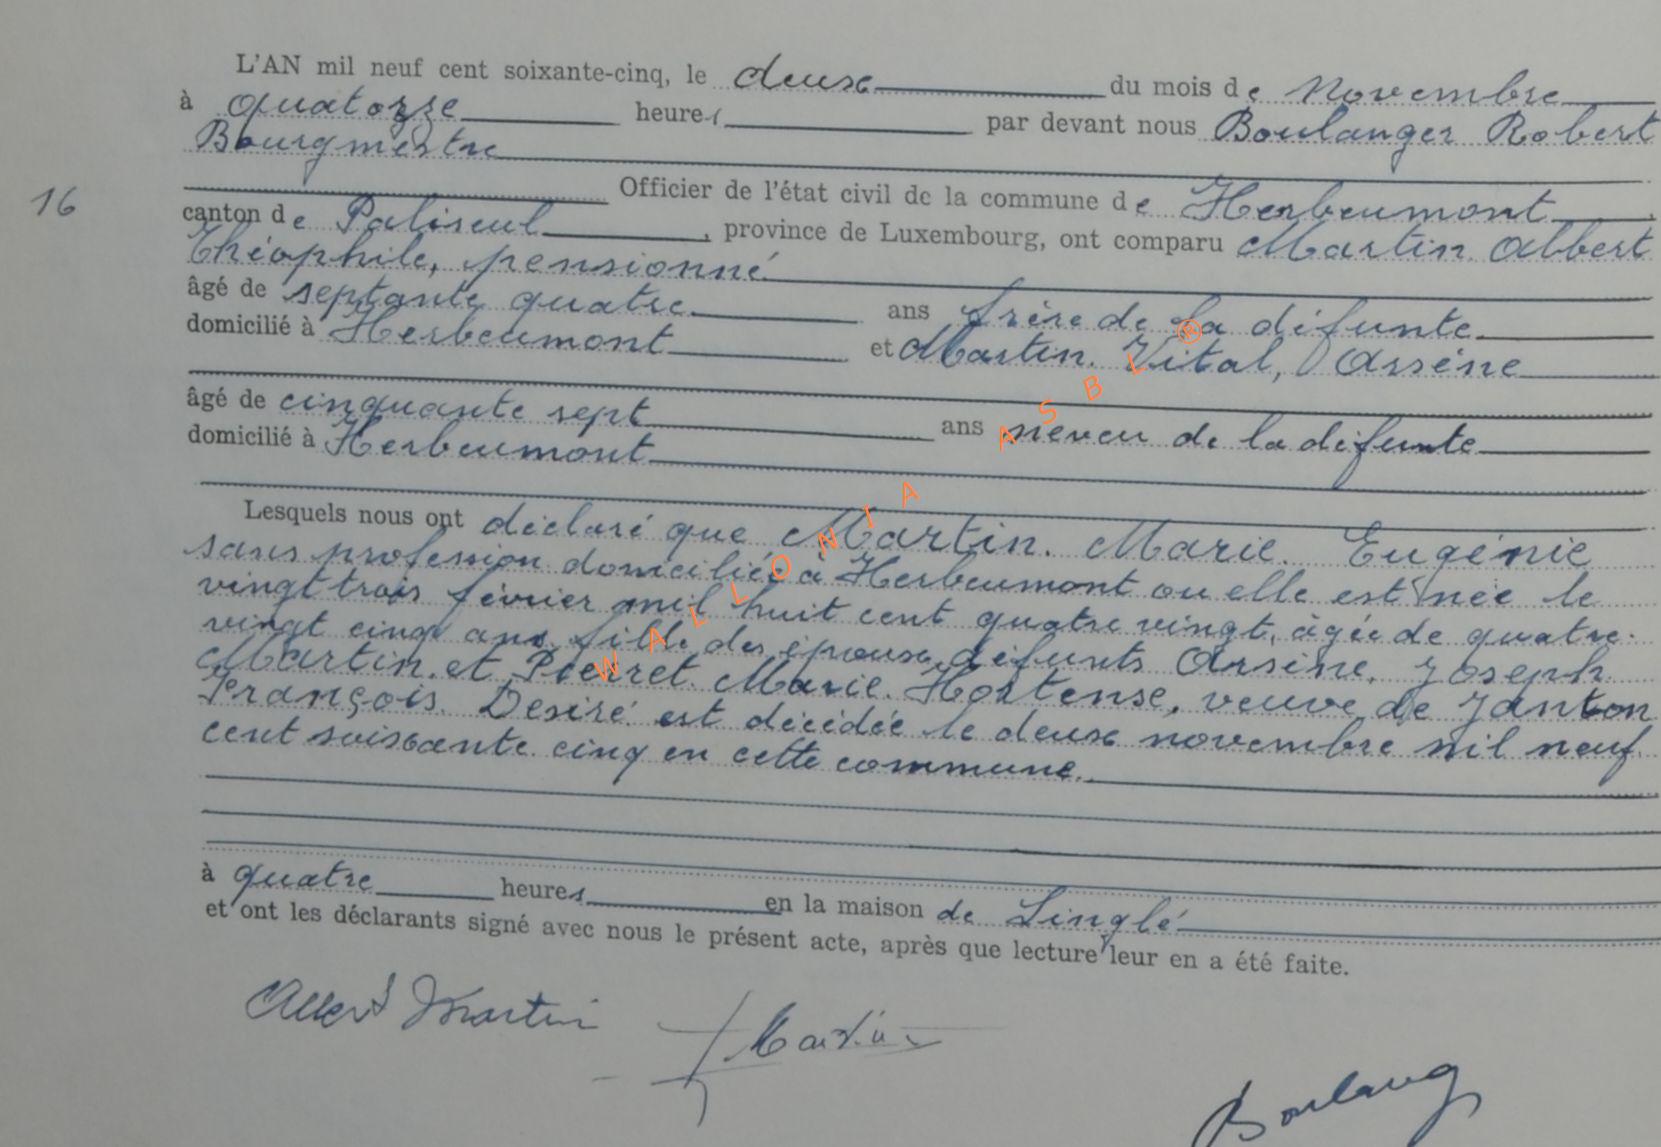 L'AN mil neuf cent soixante-cinq, le deux du mois de Novembre
à quatorze heures par devant nous Boulanger Robert
Bourgmestre
Officier de l'état civil de la commune de Herbeumont
16
canton de Paliseul, province de Luxembourg, ont comparu Martin Albert
Théophile, pensionné
âgé de septante quatre ans frère de la défunte
domicilié à Herbeumont et Martin. Vital, Arsène
âgé de cinquante sept ans neveu de la défunte
domicilié à Herbeumont
Lesquels nous ont déclaré que Martin. Marie. Eugénie
sans profession domiciliée à Herbeumont ou elle est née le
vingt trois février mil huit cent quatre vingt, âgée de quatre.
vingt cinq ans. fille des époux défunts Arsène. Joseph.
Martin. et Pierret. Marie. Hortense, veuve de Janton
François. Desiré est décédée le deux novembre mil neuf
cent soixante cinq en cette commune.
à quatre heures en la maison de Linglé
et ont les déclarants signé avec nous le présent acte, après que lecture leur en a été faite.
Albert Martin Martin
Boulang
WALLONIA ASBL ®